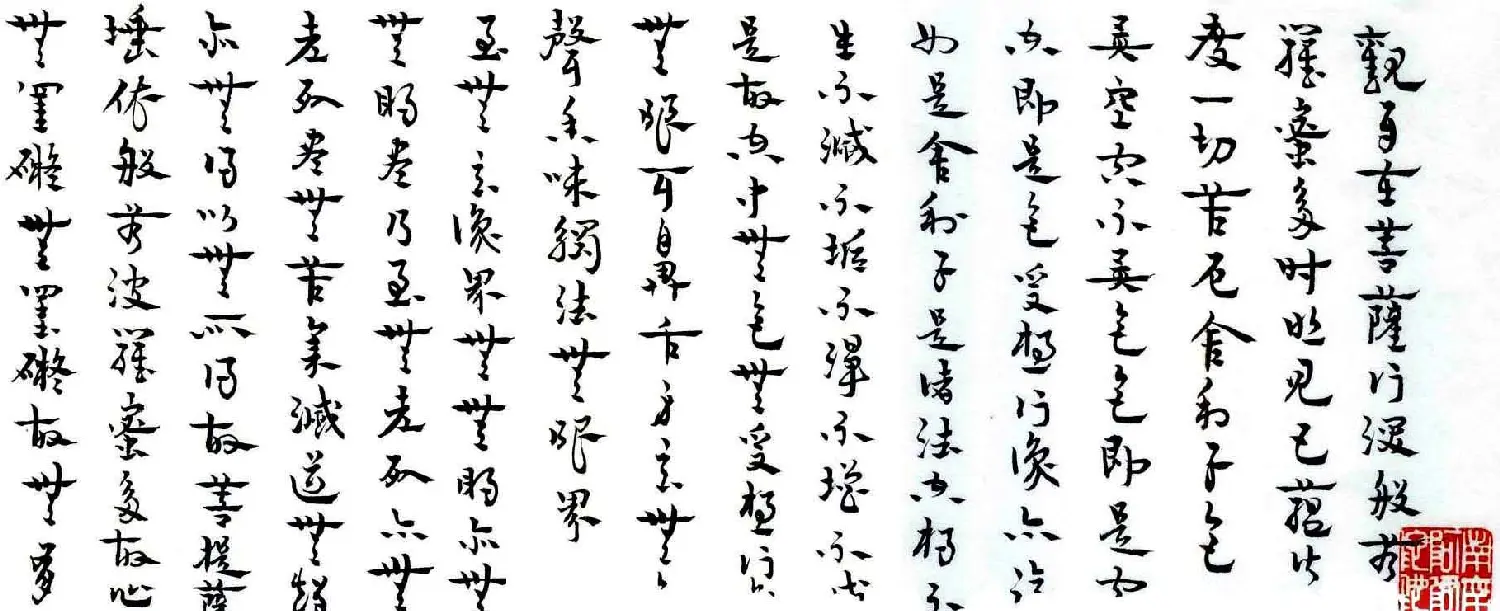 觀自在菩薩行深般若
羅蜜多時照見五蘊皆
度一切苦厄舍利子色
異空空不異色色即是空
空即是色受想行識亦
如是舍利子是諸法空相不
生不滅不垢不淨不增不減
是故空中無色無受想行識
無眼耳鼻舌身意無
聲香味觸法無眼界
至無意識界無無明亦無
無明盡乃至無老死亦無
老死盡無苦集滅道無智
亦無得以無所得故菩提薩
埵依般若波羅蜜多故心
無罣礙無罣礙故無有